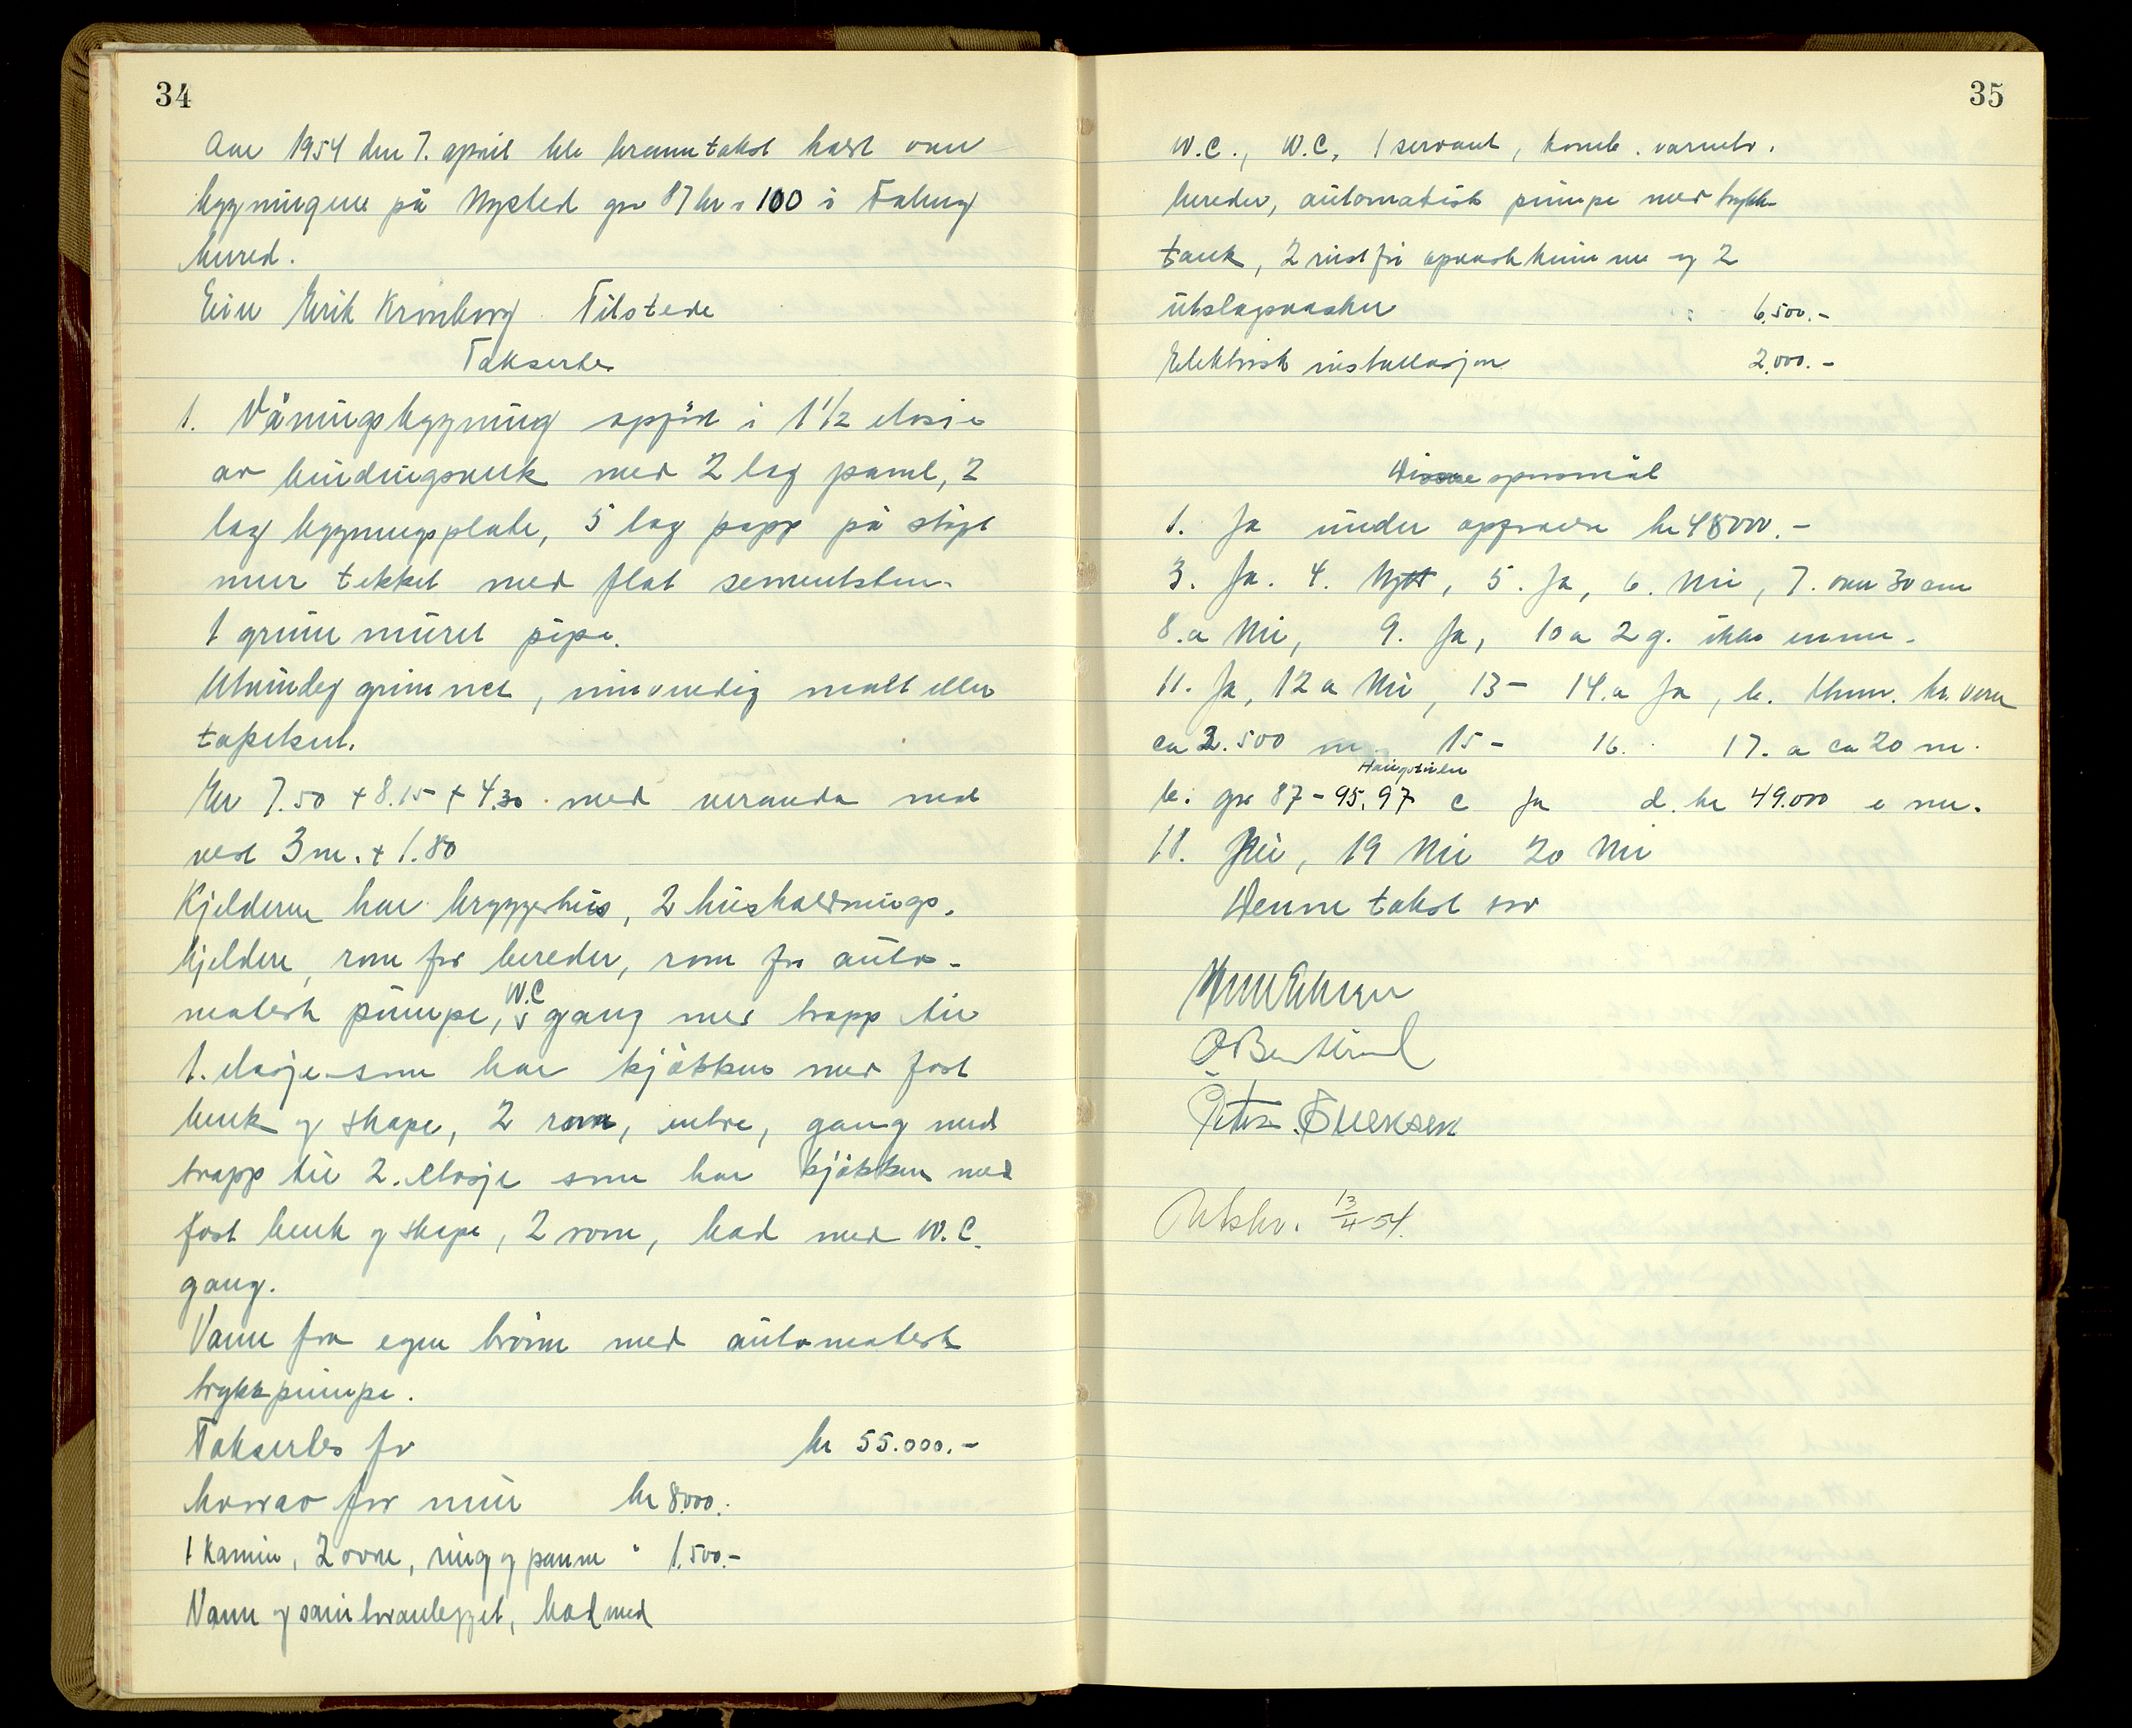 34
Aar 1954 den 7. april ble branntakst holdt over
bygningene på Nysted gnr 87 br n 100 i Faberg
herred.
Eier Erik Kronborg Tilstede
Takserte
1. Våningsbygning oppført i 1 1/2 etasje
av bindingsverk med 2 lag panel, 2
lag bygningsplate, 5 lag papp på støpt
mur tekket med flat sementsten.
1 grunnmuret pipe.
Utvendig grunnet, innvendig malt eller
tapetsert.
Er 7.50 + 8.15 + 4.30 med veranda med
vest 3 m. + 1.80
Kjelderen har bryggerhus, 2 husholdnings-
kjeldere, rom for bereder, rom for auto-
matisk pumpe, W.C gang med trapp til
1. etasje som har kjøkken med fast
benk og skape, 2 rom, entre, gang med
trapp til 2. etasje som har kjøkken med
fast benk og skape, 2 rom, bad med W.C.
gang.
Vann fra egen brønn med automatisk
trykkpumpe.
Takseres for kr 55.000.-
hvorav for mur kr 8000.
1 kamin, 2 ovne, ring og panne " 1.500.-
Vann og sanitæranlegget, bad med
35
W.C., W.C, 1 servant, komb. varmtv.
bereder, automatisk pumpe med trykk
tank, 2 rustfri oppvaskkummer og 2
utslagsvasker 6.500.-
Elektrisk installasjon 2.000.-
Disse spørsmål
1. Ja under oppførelse kr 48000.-
3. Ja. 4. Nytt, 5. Ja, 6. Nei, 7. over 30 cm
8. a Nei, 9. Ja, 10 a 2 g. ikke ennu.
11. Ja, 12 a Nei, 13 - 14. a Ja, b.
ca 2.500 m. 15 - 16. 17. a ca 20 m.
b. gnr 87 - 95, 97 c Ja d. kr 49.000 e nei.
18. Nei, 19 Nei 20 Nei
Denne takst
Utskr. 13/4-54.